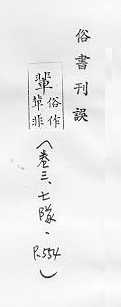 俗書刊誤
輩
俗作
軰非
(卷三、七隊、P.554)